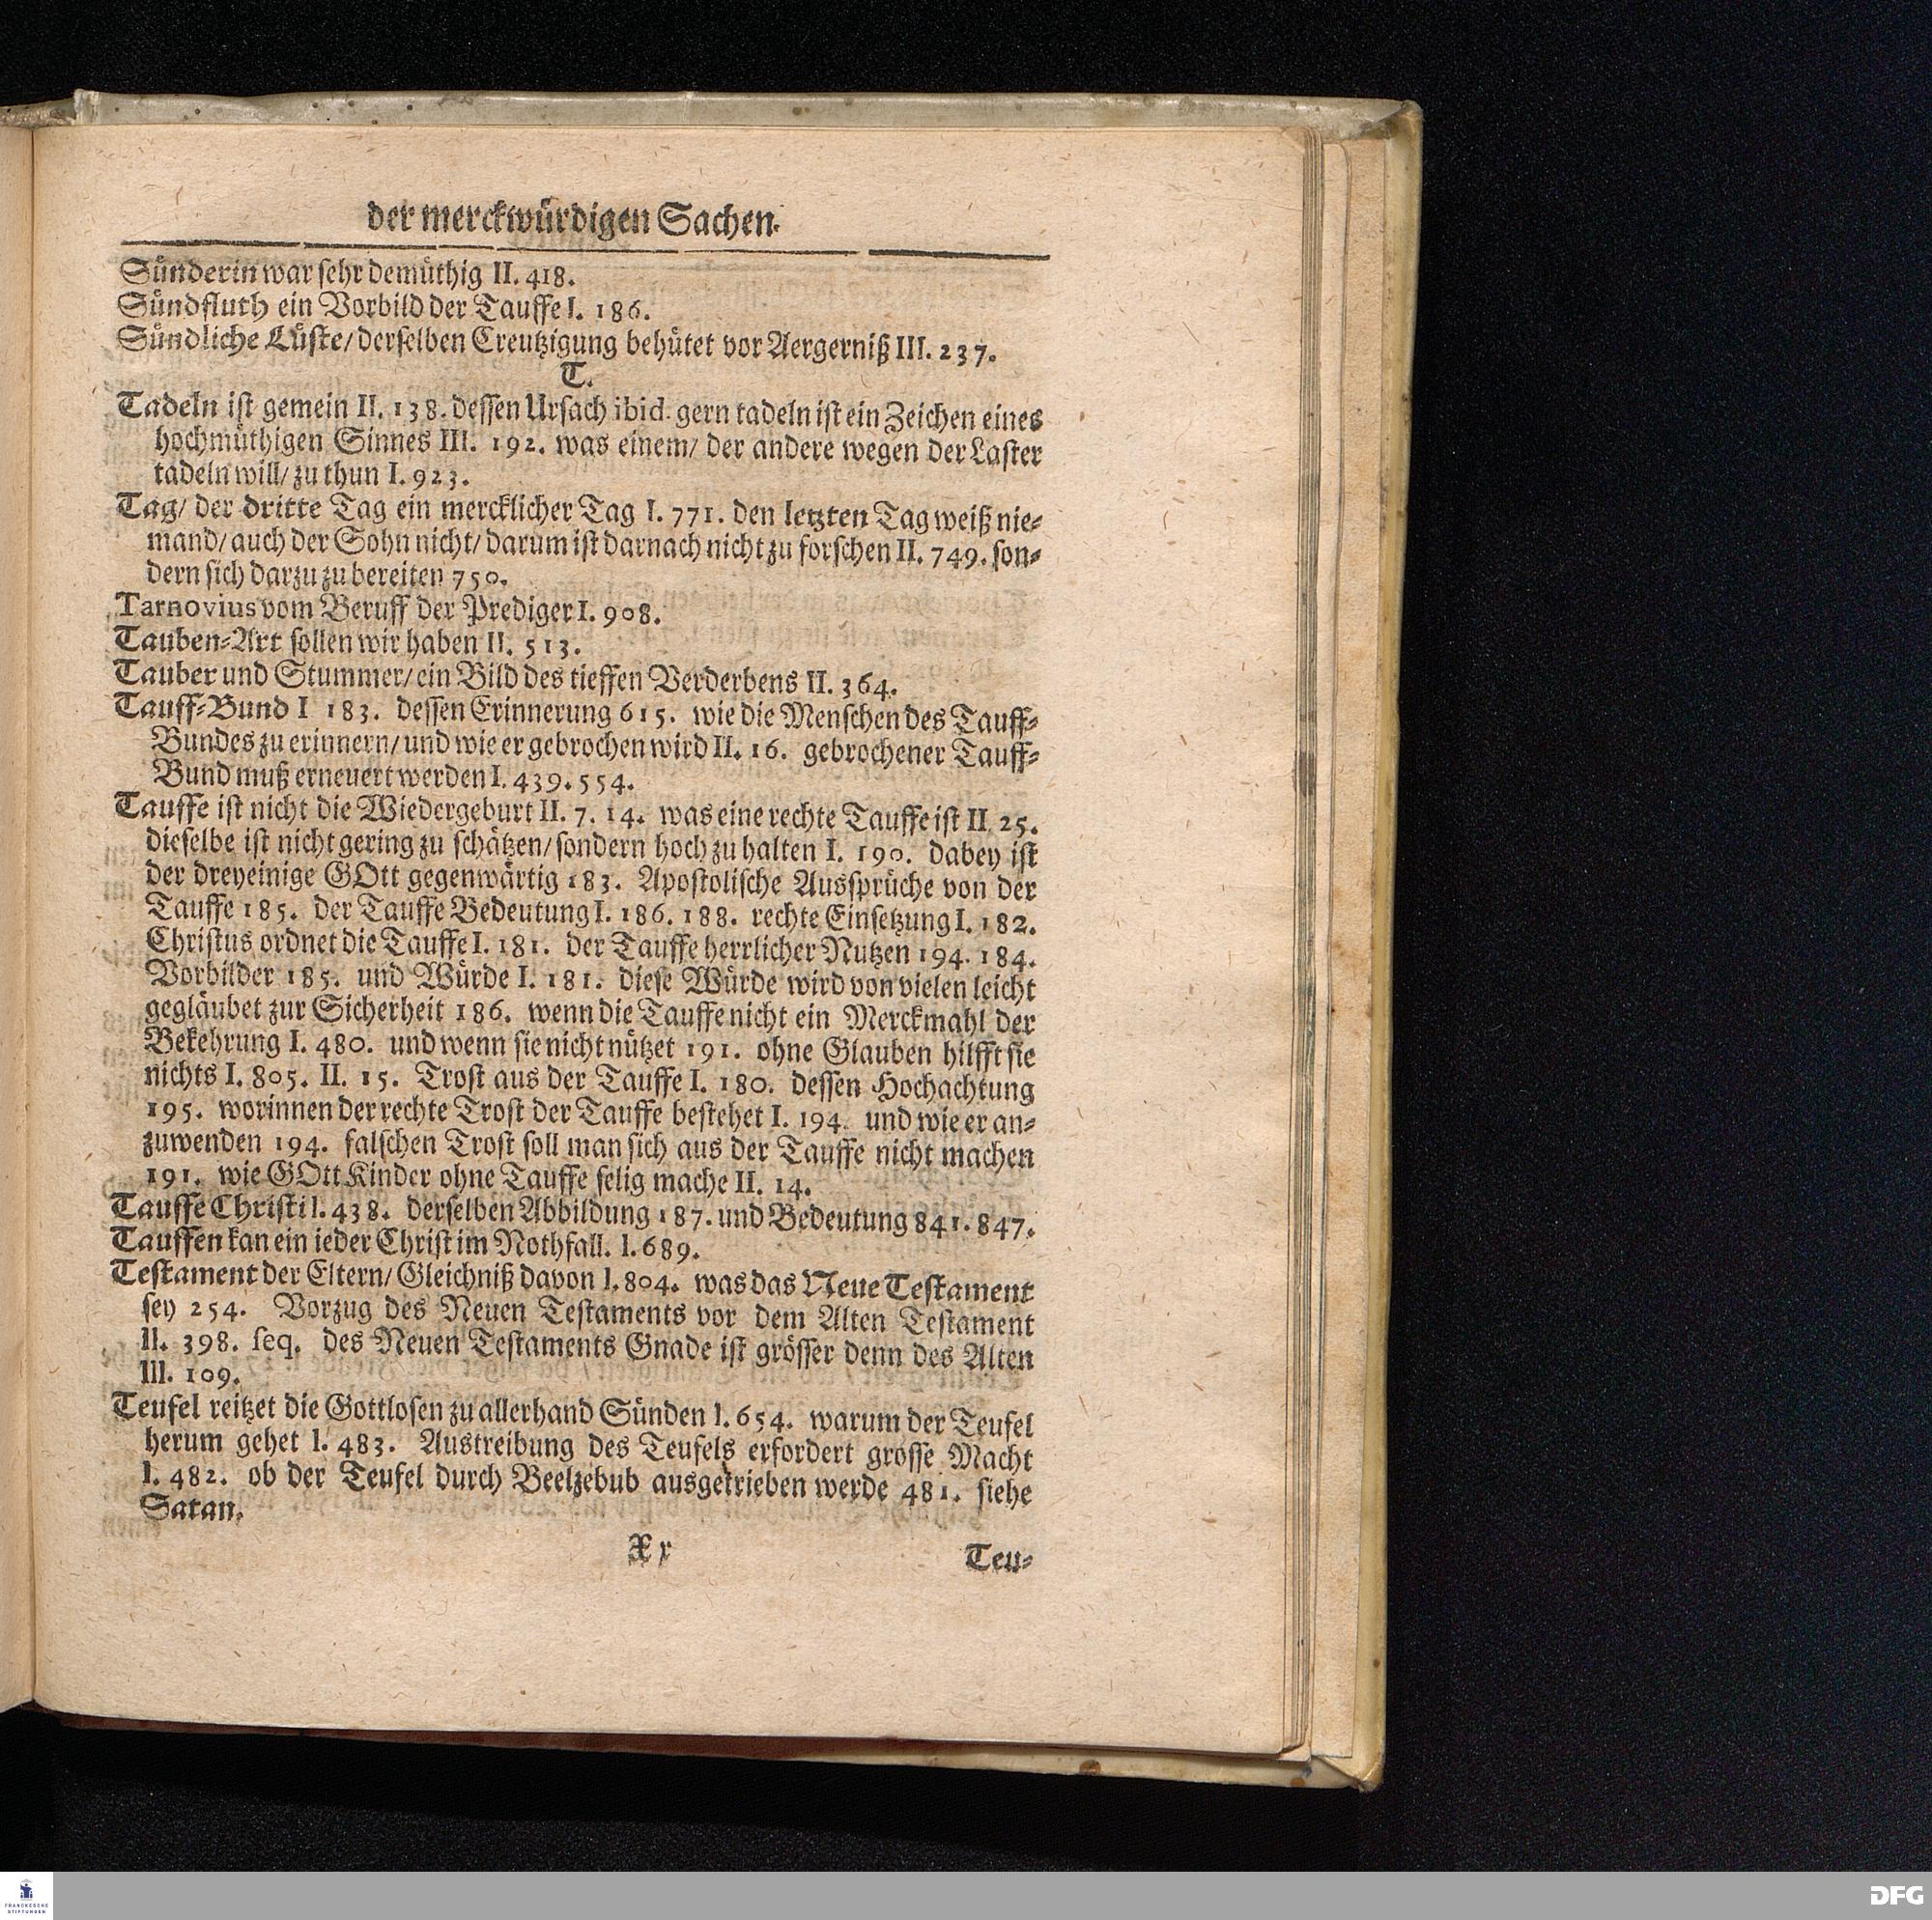 der merckwürdigen Sachen.
Sünderin war sehr demüthig II. 418.
Sündfluth ein Vorbild der Tauffe I. 186.
Sündliche Lüste/ derselben Creutzigung behütet vor Aergerniß III. 237.
T.
Tadeln ist gemein II. 138. dessen Ursach ibid. gern tadeln ist ein Zeichen eines
hochmüthigen Sinnes III. 192. was einem/ der andere wegen der Laster
tadeln will/ zu thun I. 923.
Tag/ der dritte Tag ein mercklicher Tag I. 771. den letzten Tag weiß nie-
mand/ auch der Sohn nicht/ darum ist darnach nicht zu forschen II. 749. son-
dern sich darzu zu bereiten 750.
Tarnovius vom Beruff der Prediger I. 908.
Tauben-Art sollen wir haben II. 513.
Tauber und Stummer/ ein Bild des tieffen Verderbens II. 364.
Tauff-Bund I 183. dessen Erinnerung 615. wie die Menschen des Tauff-
Bundes zu erinnern/ und wie er gebrochen wird II. 16. gebrochener Tauff-
Bund muß erneuert werden I. 439. 554.
Tauffe ist nicht die Wiedergeburt II. 7. 14. was eine rechte Tauffe ist II. 25.
dieselbe ist nicht gering zu schätzen/ sondern hoch zu halten I. 190. dabey ist
der dreyeinige GOtt gegenwärtig 183. Apostolische Aussprüche von der
Tauffe 185. der Tauffe Bedeutung I. 186. 188. rechte Einsetzung I. 182.
Christus ordnet die Tauffe I. 181. der Tauffe herrlicher Nutzen 194. 184.
Vorbilder 185. und Würde I. 181. diese Würde wird von vielen leicht
gegläubet zur Sicherheit 186. wenn die Tauffe nicht ein Merckmahl der
Bekehrung I. 480. und wenn sie nicht nützet 191. ohne Glauben hilfft sie
nichts I. 805. II. 15. Trost aus der Tauffe I. 180. dessen Hochachtung
195. worinnen der rechte Trost der Tauffe bestehet I. 194. und wie er an-
zuwenden 194. falschen Trost soll man sich aus der Tauffe nicht machen
191. wie GOtt Kinder ohne Tauffe selig mache II. 14.
Tauffe Christi I. 438. derselben Abbildung 187. und Bedeutung 841. 847.
Tauffen kan ein ieder Christ im Nothfall. I. 689.
Testament der Eltern/ Gleichniß davon I. 804. was das Neue Testament
sey 254. Vorzug des Neuen Testaments vor dem Alten Testament
II. 398. seq. des Neuen Testaments Gnade ist grösser denn des Alten
III. 109.
Teufel reitzet die Gottlosen zu allerhand Sünden I. 654. warum der Teufel
herum gehet I. 483. Austreibung des Teufels erfordert grosse Macht
I. 482. ob der Teufel durch Beelzebub ausgetrieben werde 481. siehe
Satan.
Xx
Teu-
FRANCKESCHE
STIFTUNGEN
DFG